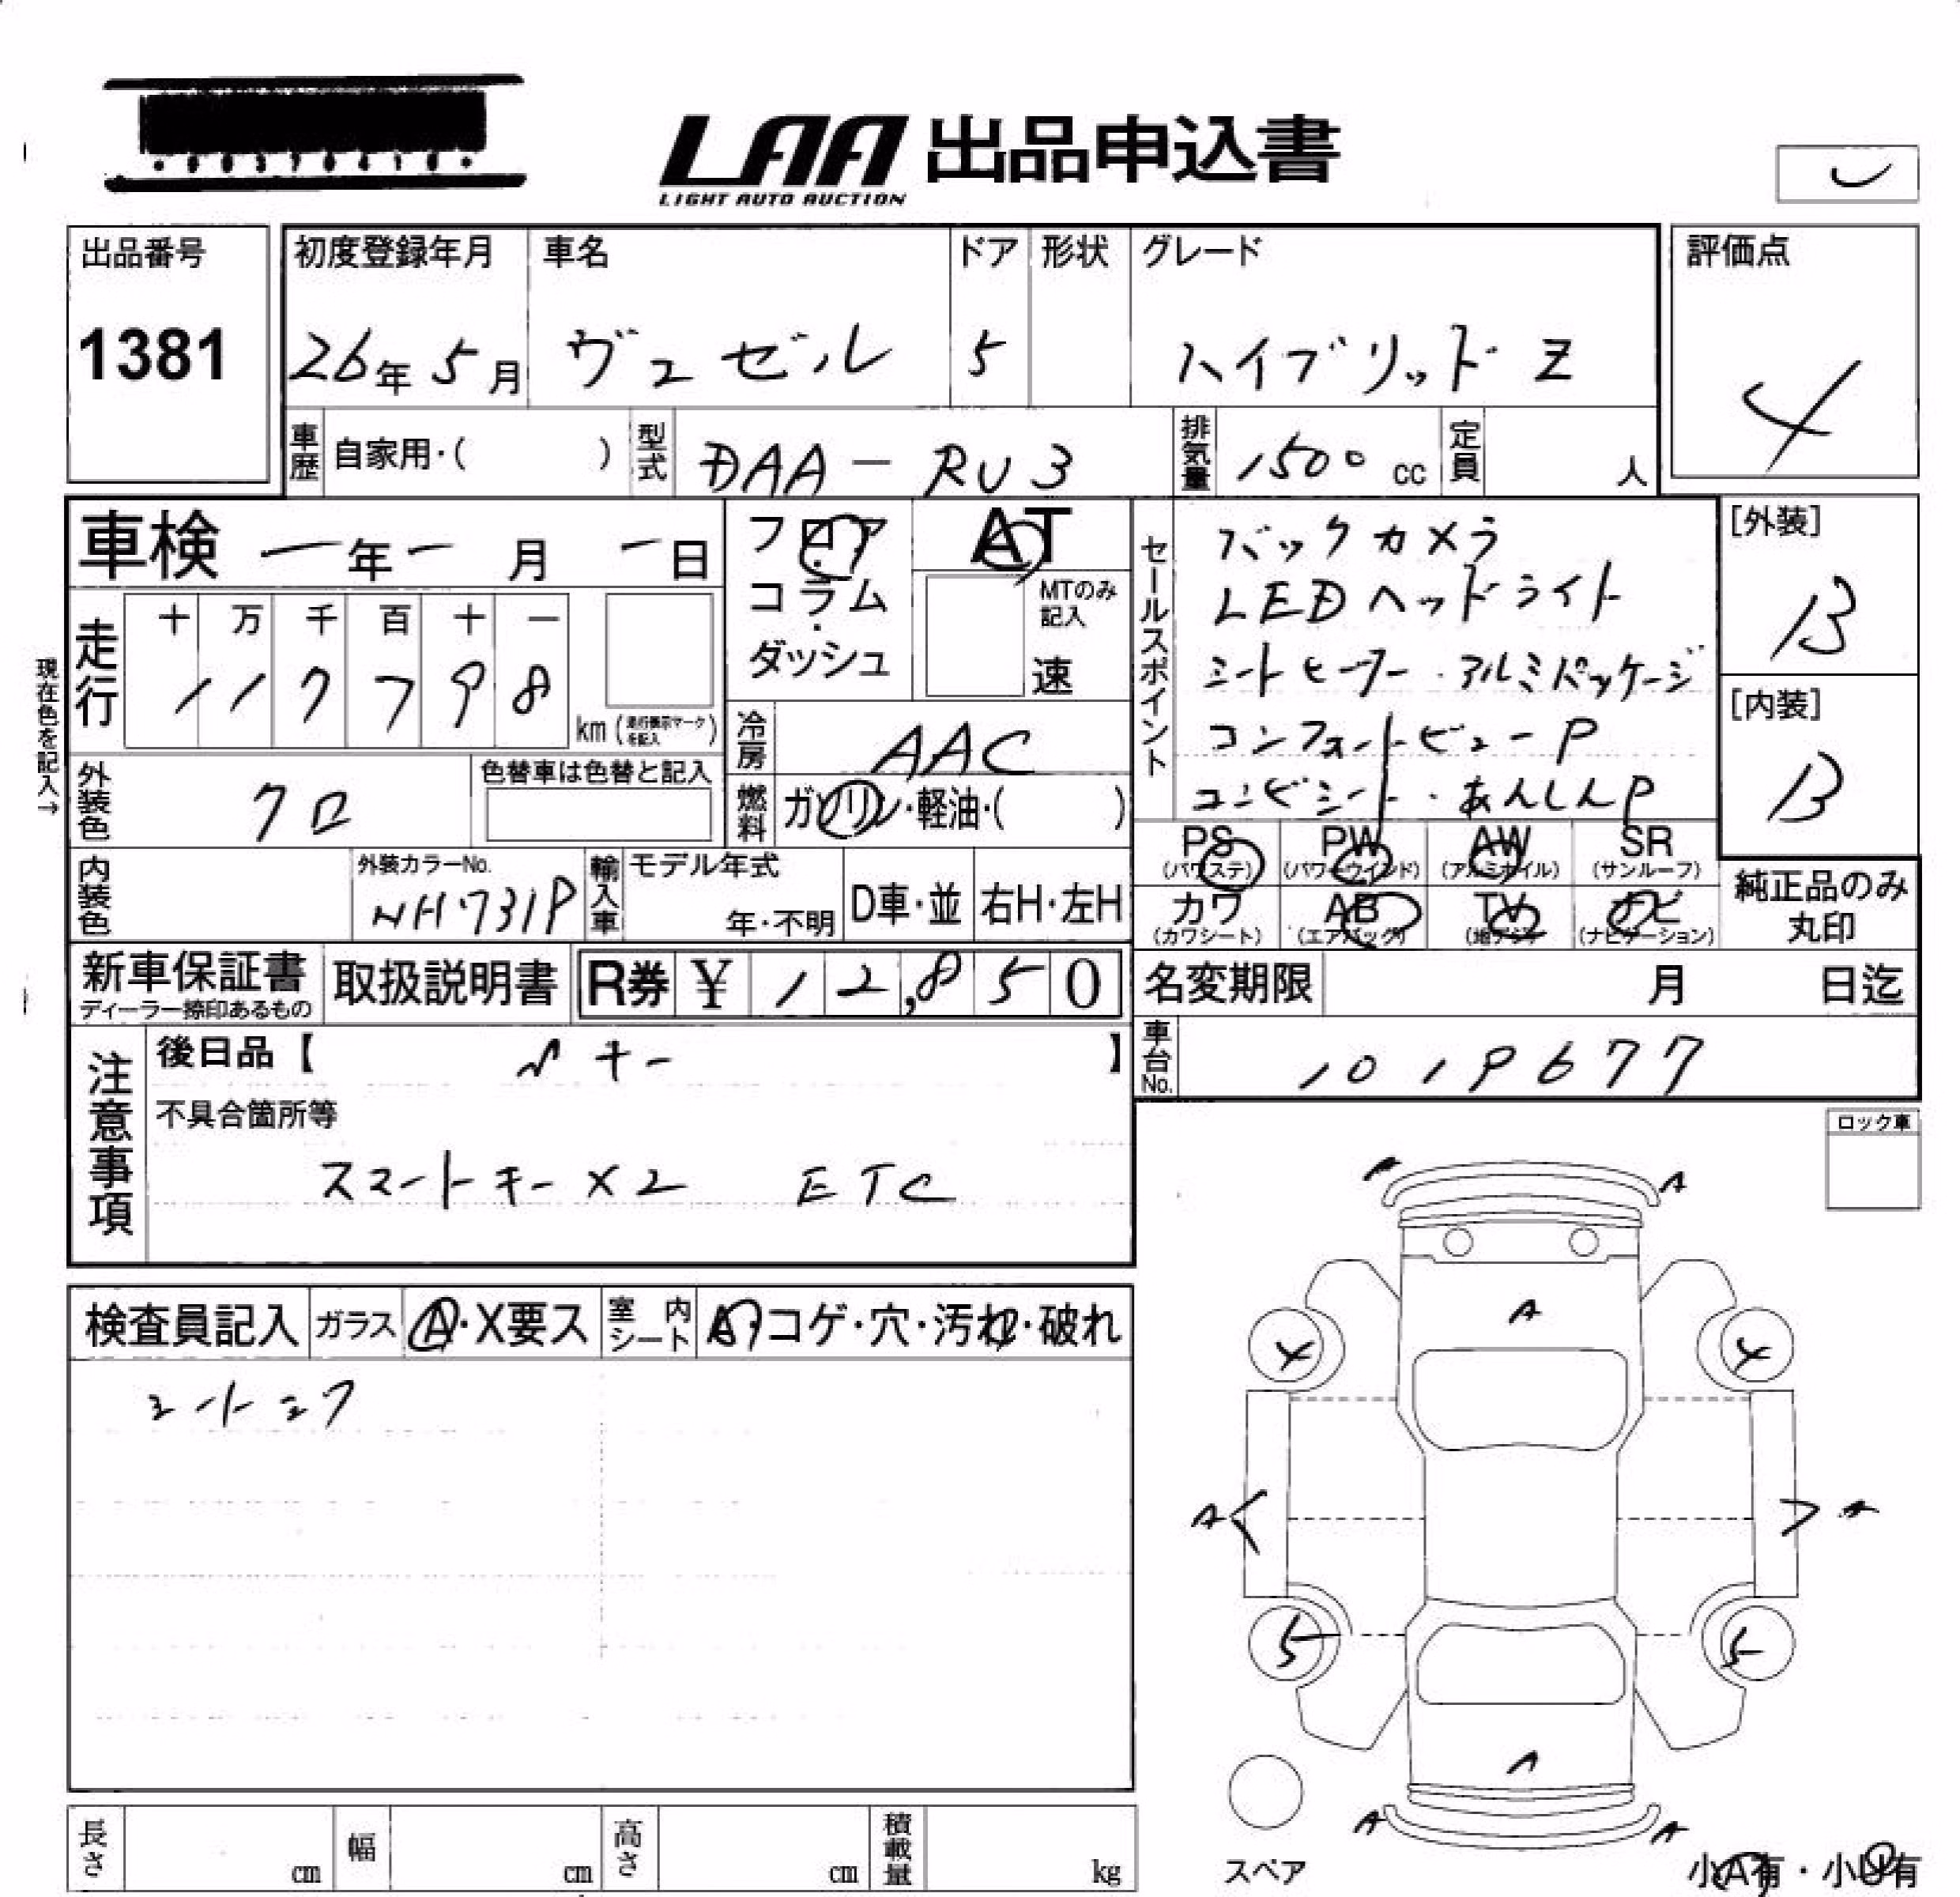 LAA 出品申込書
LIGHT AUTO AUCTION
出品番号 初度登録年月 車名 ドア 形状 グレード 評価点
1381 26年 5月 ヴェゼル 5 ハイブリッド Z 4
車歴 自家用・( ) 型式 DAA-RU3 排気量 1500 cc 定員 人
車検 ー年ー月ー日
フロア・コラム・ダッシュ
AT
MTのみ記入
速
セールスポイント
バックカメラ
LEDヘッドライト
シートヒーター・アルミパッケージ
コンフォートビューP
コンビシート・あんしんP
[外装]
B
[内装]
B
現在色を記入→
走行
十 万 千 百 十 一
1 1 7 7 9 8
km (走行表示マークを記入)
冷房 AAC
外装色 クロ
色替車は色替と記入
燃料 ガソリン・軽油・( )
PS (パワステ) PW (パワーウインド) AW (アルミホイル) SR (サンルーフ)
カワ (カワシート) AB (エアバッグ) TV (地デジ) ナビ (ナビゲーション)
純正品のみ丸印
内装色
外装カラーNo.
NH731P
輸入車
モデル年式
年・不明
D車・並
右H・左H
新車保証書
ディーラー捺印あるもの
取扱説明書
R券 ¥ 12,850
名変期限 月 日迄
車台No. 1019677
注意事項
後日品【 キー 】
不具合箇所等
スマートキー×2 ETC
ロック車
検査員記入 ガラス A・X要ス 室内シート A・コゲ・穴・汚れ・破れ
A A
A
4 4
A A
5 5
A
A A
スペア
長さ cm 幅 cm 高さ cm 積載量 kg
小A有・小U有